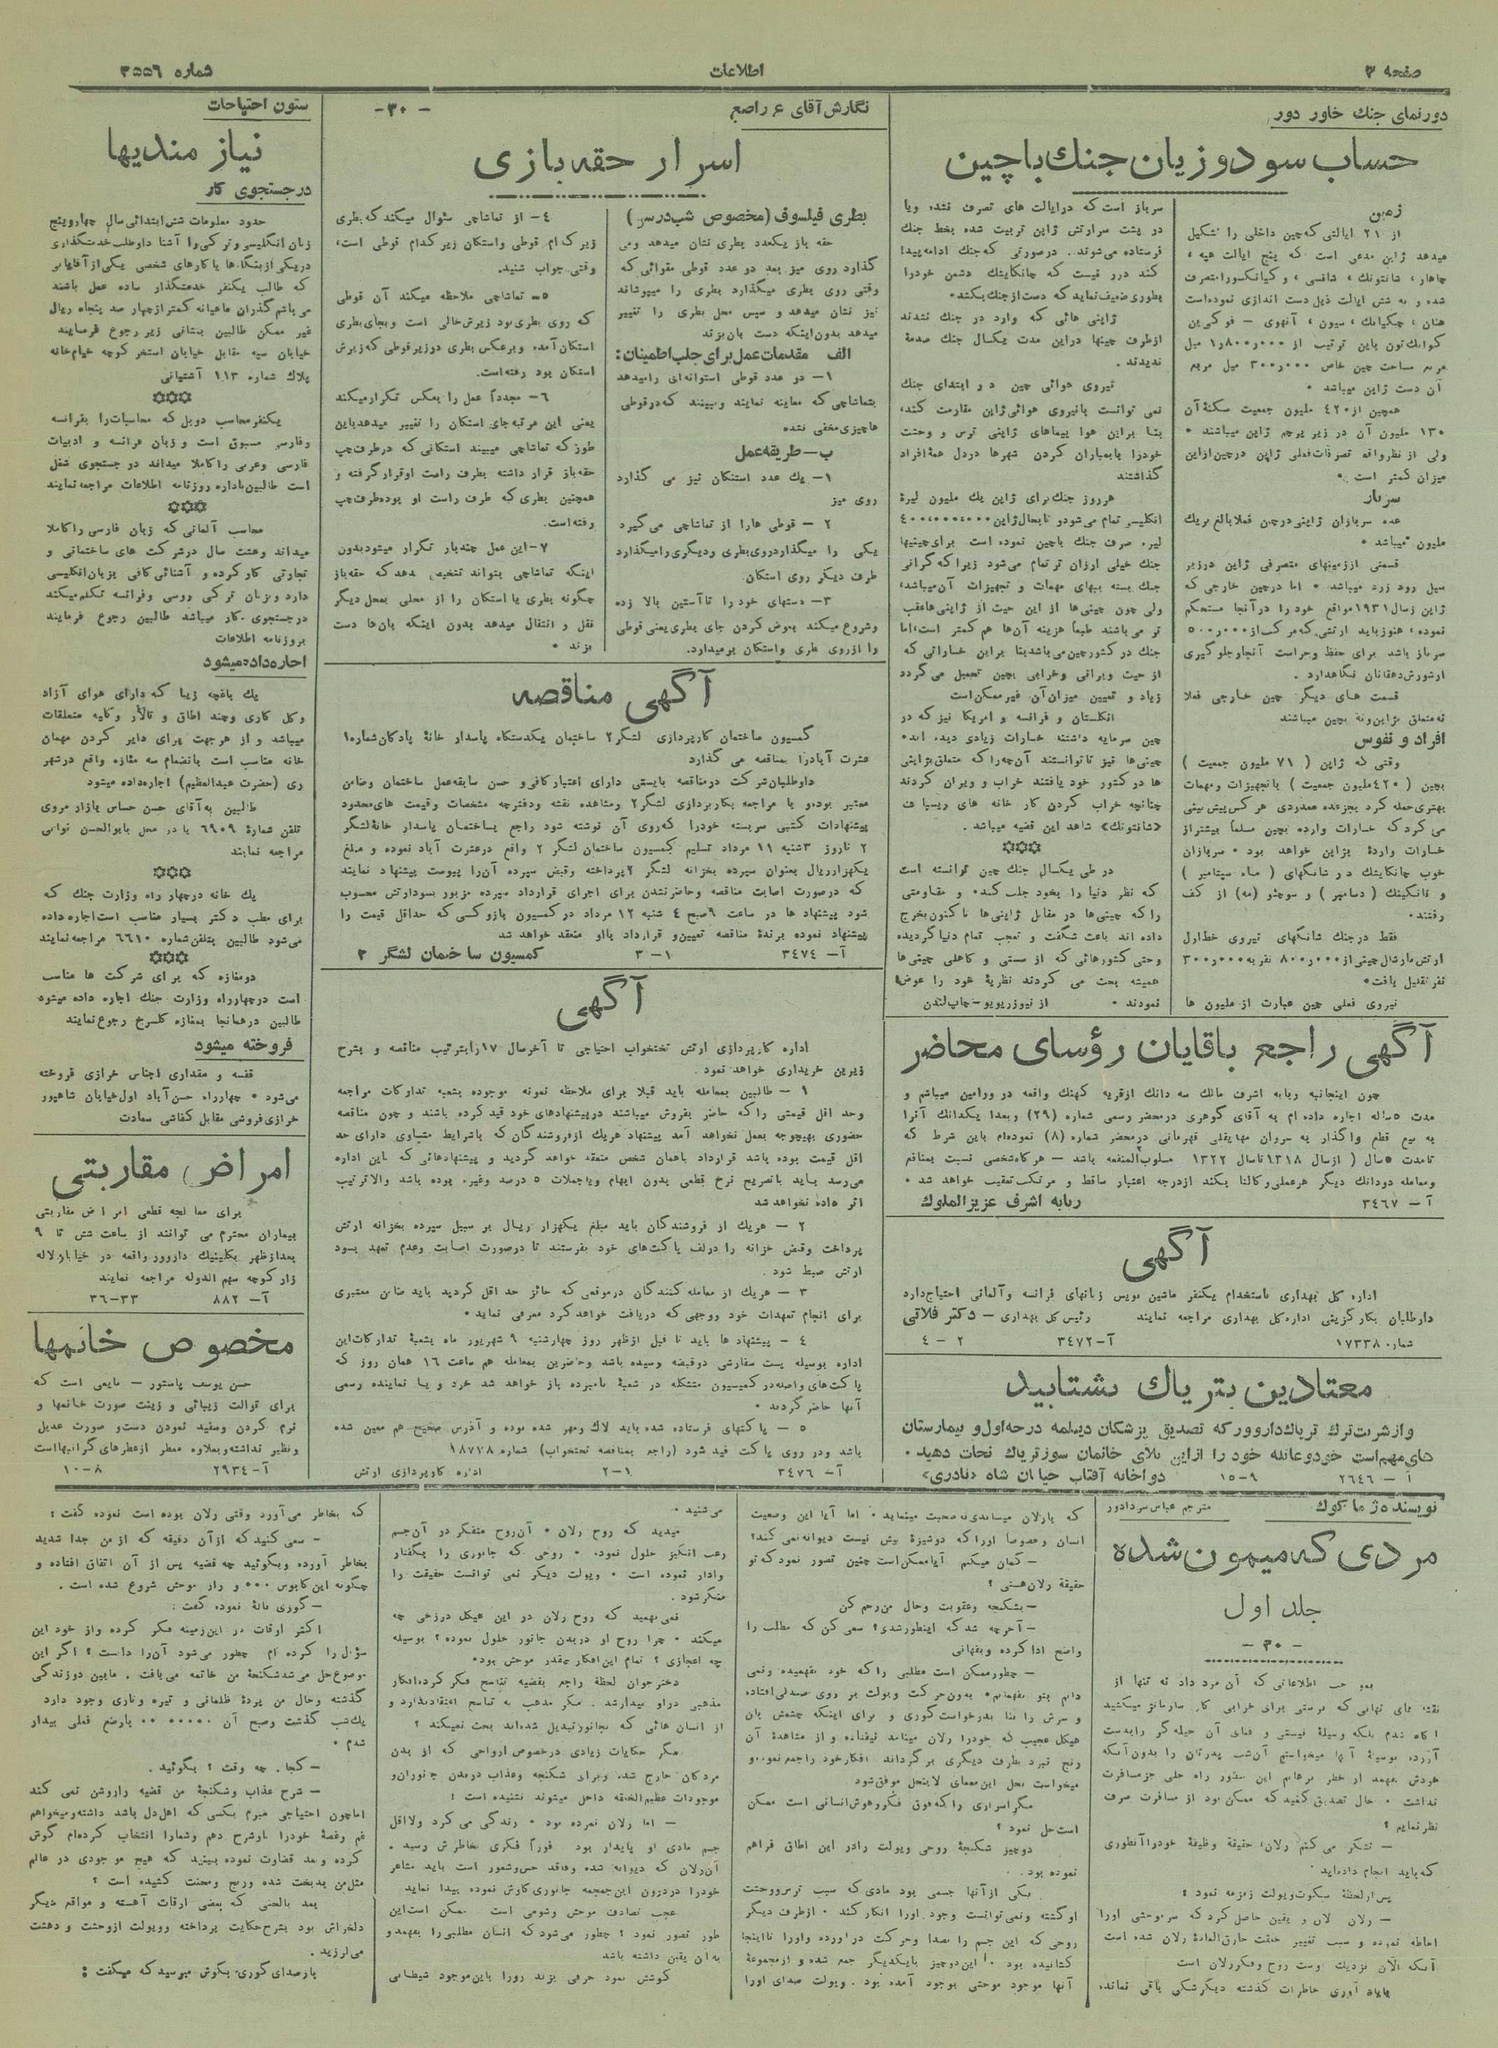 صفحه ۳
اطلاعات
شماره ۳۵۵۶
دورنمای جنك خاور دور
حساب سود و زیان جنك با چین
زمین
از ۲۱ ایالتی که چین داخلی را تشکیل
میدهد ژاپن مدعی است که پنج ایالت هپه ،
چاهار، شانتونك، شانسی ، و کیانکسو را متصرف
شده و به شش ایالت ذیل دست اندازی نموده است
آن دست ژاپن میباشد
همچنین از ۴۲۰ ملیون جمعیت سکنهٔ آن
۱۳۰ ملیون آن در زیر پرچم ژاپن میباشند
ولی از نظر واقع تصرفات فعلی ژاپن در چین از این
میزان کمتر است
سرباز
عده سربازان ژاپنی در چین فعلا بالغ بریك
ملیون میباشد
قسمتی از زمینهای متصرفی ژاپن در زیر
سیل رود زرد میباشد اما در چین خارجی که
ژاپن از سال ۱۹۳۱ مواقع خود را در آنجا مستحکم
سرباز باشد برای حفظ وحراست آنجا و جلوگیری
از شورش دهقانان نگاهدارد .
قسمت های دیگر چین خارجی فعلا
نه متعلق بژاپن و نه بچین میباشند
افراد و نفوس
وقتی که ژاپن ( ۷۱ ملیون جمعیت )
بچین ( ۴۲۰ ملیون جمعیت ) با تجهیزات و مهمات
بهتری حمله کرد بجز عده معدودی هر کس پیش بینی
می کرد که خسارات وارده بچین مسلماً بیشتر از
خسارات واردهٔ بژاپن خواهد بود سربازان
خوب چانکایچك در شانگهای ( ماه سپتامبر )
و نانکینك ( دسامبر ) و سوچئو (مه) از کف
رفتند.
فقط در جنك شانگهای نیروی خط اول
ارتش مارشال چینی از ۸۰۰ر۰۰۰ نفر به ۳۰۰ر۰۰۰
نفر تقلیل یافت
نیروی فعلی چین عبارت از ملیون ها
سرباز است که در ایالت های تصرف نشده و یا
در پشت سر ارتش ژاپن تربیت شده بخط جنك
فرستاده میشوند . در صورتی که جنك ادامه پیدا
کند دور نیست که چانکایچك دشمن خود را
بطوری ضعیف نماید که دست از جنك بکشد
ژاپنی هائی که وارد در جنك نشدند
از طرف چینها در این مدت یکسال جنك صدمهٔ
ندیدند
نیروی هوائی چین در ابتدای جنك
نمی توانست با نیروی هوائی ژاپن مقاومت کند،
بنا بر این هوا پیماهای ژاپنی ترس و وحشت
خود را با بمباران کردن شهرها در دل همهٔ افراد
گذاشتند
هر روز جنك برای ژاپن یك ملیون لیرهٔ
لیره صرف جنك با چین نموده است برای چینیها
جنك خیلی ارزان تر تمام می شود زیرا که گرانی
جنك بسته ببهای مهمات و تجهیزات آن میباشد،
ولی چون چینی ها از این حیث از ژاپنی ها عقب
تر می باشند طبعاً هزینه آن ها هم کمتر است؛ اما
جنك در کشور چین می باشد بنا بر این خساراتی که
از حیث ویرانی و خرابی بچین تحمیل می گردد
زیاد و تعیین میزان آن غیر ممکن است
انگلستان و فرانسه و امریکا نیز که در
چین سرمایه داشتند خسارات زیادی دیده اند
چینی ها نیز تا توانستند آنچه را که متعلق بژاپنی
ها در کشور خود یافتند خراب و ویران کردند
چنانچه خراب کردن کار خانه های ریسبا ف
«شانتونك» شاهد این قضیه میباشد .
در طی یکسال جنك چین توانسته است
که نظر دنیا را بخود جلب کند و مقاومتی
را که چینی ها در مقابل ژاپنی ها تا کنون بخرج
داده اند باعث شگفت و تعجب تمام دنیا گردیده
وحتی کشورهائی که از سستی و کاهلی چینی ها
همیشه بحث می کردند نظریهٔ خود را عوض
نمودند از نیوز ریویو - چاپ لندن
آگهی راجع باقایان رؤسای محاضر
چون اینجانبه ربابه اشرف مالك سه دانك از قریه کهنك واقعه در ورامین میباشم و
مدت ۵ ساله اجاره داده ام به آقای گوهری در محضر رسمی شماره (۲۹) وبعداً یکدانك آنرا
به بیع قطع واگذار به سروان مهاباقلی قهرمانی در محضر شماره (۸) نموده‌ام باین شرط که
تا مدت ۵ سال ( از سال ۱۳۱۸ تا سال ۱۳۲۲ مسلوب المنفعه باشد - هرگاه شخصی نسبت بمنافع
ومعامله دودانك دیگر هر عملی و کالتا یکند از درجه اعتبار ساقط و مرتکب تعقیب خواهد شد
آ - ۳۴۶۷ ربابه اشرف عزیز الملوك
آگهی
اداره کل بهداری باستخدام یکنفر ماشین نویس زبانهای فرانسه و آلمانی احتیاج دارد
داوطلبان بکارگزینی اداره کل بهداری مراجعه نمایند رئیس کل بهداری - دکتر فلاتی
شماره ۱۷۳۳۸ آ - ۳۴۷۲ ۲ - ۴
معتادین بتریاك بشتابید
و از شربت ترك تریاك داروور که تصدیق پزشکان دیپلمه درجه اول و بیمارستان
های مهم است خود و عائله خود را از این بلای خانمان سوز تریاك نجات دهید .
آ - ۲۶۴۶ ۹ - ۱۵ دواخانه آفتاب خیابان شاه «نادری»
نگارش آقای ع راصع
-۳۰-
اسرار حقه بازی
بطری فیلسوف (مخصوص شب درسن)
حقه باز یکعدد بطری نشان میدهد و می
گذارد روی میز بعد دو عدد قوطی مقوائی که
وقتی روی بطری میگذارد بطری را میپوشاند
نیز نشان میدهد و سپس محل بطری را تغییر
میدهد بدون اینکه دست بآن بزند
الف مقدمات عمل برای جلب اطمینان :
۱ - دو عدد قوطی استوانه ای را میدهد
بتماشاچی که معاینه نمایند و ببینند که در قوطی
ها چیزی مخفی نشده
ب - طریقه عمل
۱ - یك عدد استکان نیز می گذارد
روی میز
۲ - قوطی ها را از تماشاچی می گیرد
یکی را میگذارد روی بطری و دیگری را میگذارد
طرف دیگر روی استکان
۳ - دستهای خود را تا آستین بالا زده
وشروع میکند بعوض کردن جای بطری یعنی قوطی
را از روی بطری واستکان بر میدارد.
۴ - از تماشاچی سئوال میکند که بطری
زیر کدام قوطی واستکان زیر کدام قوطی است،
وقتی جواب شنید.
۵ - تماشاچی ملاحظه میکند آن قوطی
که روی بطری بود زیرش خالی است و بجای بطری
استکان آمده و برعکس بطری در زیر قوطی که زیرش
استکان بود رفته است.
۶ - مجدداً عمل را بعکس تکرار میکند
یعنی این مرتبه جای استکان را تغییر میدهد باین
طور که تماشاچی میبیند استکانی که در طرف چپ
حقه باز قرار داشته بطرف راست او قرار گرفته و
همچنین بطری که طرف راست او بوده طرف چپ
رفته است.
۷ - این عمل چندبار تکرار میشود بدون
اینکه تماشاچی بتواند تشخیص بدهد که حقه باز
چگونه بطری یا استکان را از محلی بمحل دیگر
نقل و انتقال میدهد بدون اینکه بآن ها دست
بزند
آگهی مناقصه
کمسیون ساختمان کارپردازی لشگر ۲ ساختمان یکدستگاه پاسدار خانهٔ پادگان شماره ۱
عشرت آباد را بمناقصه می گذارد
داوطلبان شرکت در مناقصه بایستی دارای اعتبار کافی و حسن سابقه عمل ساختمان وضامن
معتبر بوده و با مراجعه بکارپردازی لشگر ۲ و مشاهده نقشه و دفترچه مشخصات و قیمت های محدود
پیشنهادات کتبی سربسته خود را که روی آن نوشته شود راجع بساختمان پاسدار خانهٔ لشگر
۲ تا روز ۳ شنبه ۱۱ مرداد تسلیم کمسیون ساختمان لشگر ۲ واقع در عشرت آباد نموده و مبلغ
یکهزار ریال بعنوان سپرده بخزانه لشگر ۲ پرداخته وقبض سپرده آن را پیوست پیشنهاد نمایند
که در صورت اصابت مناقصه و حاضر نشدن برای اجرای قرارداد سپرده مزبور بسود ارتش محسوب
شود پیشنهاد ها در ساعت ۹ صبح ۴ شنبه ۱۲ مرداد در کمسیون باز و کسی که حداقل قیمت را
پیشنهاد نموده برندهٔ مناقصه تعیین و قرارداد با او منعقد خواهد شد
آ - ۳۴۷۴ ۱ - ۳ کمسیون ساختمان لشگر ۲
آگهی
اداره کارپردازی ارتش تختخواب احتیاجی تا آخر سال ۱۷ را بترتیب مناقصه و بشرح
زیرین خریداری خواهد نمود .
۱ - طالبین بمعامله باید قبلا برای ملاحظه نمونه موجوده بشعبه تدارکات مراجعه
وحد اقل قیمتی را که حاضر بفروش میباشند در پیشنهادهای خود قید کرده باشند و چون مناقصه
حضوری بهیچوجه بعمل نخواهد آمد پیشنهاد هریك از فروشندگان که باشرایط متساوی دارای حد
اقل قیمت بوده باشد قرارداد باهمان شخص منعقد خواهد گردید و پیشنهادهائی که باین اداره
می‌رسد باید با تصریح نرخ قطعی بدون ابهام و با جملات ۵ درصد وغیره بوده باشد والا ترتیب
اثر داده نخواهد شد
۲ - هریك از فروشندگان باید مبلغ یکهزار ریال بر سبیل سپرده بخزانه ارتش
پرداخت وقبض خزانه را در لف پاکت‌های خود بفرستند تا در صورت اصابت وعدم تعهد بسود
ارتش ضبط شود .
۳ - هریك از معامله کنندگان در موقعی که حائز حد اقل گردید باید ضامن معتبری
برای انجام تعهدات خود و وجهی که دریافت خواهد کرد معرفی نماید
۴ - پیشنهاد ها باید تا قبل از ظهر روز چهارشنبه ۹ شهریور ماه بشعبهٔ تدارکات این
اداره بوسیله پست سفارشی دوقبضه رسیده باشد وحاضرین بمعامله هم ساعت ۱۶ همان روز که
پاکت‌های واصله در کمیسیون متشکله در شعبهٔ نامبرده باز خواهد شد خود و یا نماینده رسمی
آنها حاضر گردند
۵ - پاکتهای فرستاده شده باید لاك ومهر شده بوده و آدرس صحیح هم معین شده
باشد و در روی پاکت قید شود (راجع بمناقصه تختخواب) شماره ۱۸۷۷۸
آ - ۳۴۷۶ ۱ - ۲ اداره کارپردازی ارتش
ستون احتیاجات
نیازمندیها
در جستجوی کار
حدود معلومات شش ابتدائی سال چهار و پنج
زبان انگلیسی و ترکی را آشنا داوطلب خدمتگذاری
در یکی از بنگاه ها یا کارهای شخصی یکی از آقایانی
که طالب یکنفر خدمتگذار ساده عمل باشند
می باشم گذران ماهیانه کمتر از چهار صد پنجاه ریال
غیر ممکن طالبین بنشانی زیر رجوع فرمایند
خیابان سپه مقابل خیابان استخر کوچه خیام خانه
پلاك شماره ۱۱۳ آشتیانی
یکنفر محاسب دوبل که محاسبات را بفرانسه
وفارسی مسبوق است و زبان فرانسه و ادبیات
فارسی وعربی را کاملا میداند در جستجوی شغل
است طالبین باداره روزنامه اطلاعات مراجعه نمایند
محاسب آلمانی که زبان فارسی را کاملا
میداند وهشت سال در شرکت های ساختمانی و
تجارتی کار کرده و آشنائی کافی بزبان انگلیسی
دارد وبزبان ترکی روسی وفرانسه تکلم میکند
در جستجوی کار میباشد طالبین رجوع فرمایند
بروزنامه اطلاعات
اجاره داده میشود
یك باغچه زیبا که دارای هوای آزاد
وگل کاری وچند اطاق و تالار وکلیه متعلقات
میباشد و از هر جهت برای دایر کردن مهمان
خانه مناسب است بانضمام سه مغازه واقع در شهر
ری (حضرت عبدالعظیم) اجاره داده میشود
طالبین به آقای حسن حساس بازار مروی
تلفن شمارهٔ ۶۹۰۹ یا در محل بابوالحسن نوائی
مراجعه نمایند
یك خانه در چهار راه وزارت جنك که
برای مطب دکتر بسیار مناسب است اجاره داده
می‌شود طالبین بتلفن شماره ۶۶۱۰ مراجعه نمایند
دو مغازه که برای شرکت ها مناسب
است در چهارراه وزارت جنك اجاره داده میشود
طالبین در همانجا بمغازه گلسرخ رجوع نمایند
فروخته میشود
قفسه و مقداری اجناس خرازی فروخته
می‌شود چهارراه حسن آباد اول خیابان شاهپور
خرازی فروشی مقابل کفاشی سعادت
امراض مقاربتی
برای معالجه قطعی امراض مقاربتی
بیماران محترم می توانند از ساعت شش تا ۹
بعد از ظهر بکلینیك داروور واقعه در خیابان لاله
زار کوچه سهم الدوله مراجعه نمایند
آ - ۸۸۲ ۳۳ - ۳۶
مخصوص خانمها
حسن یوسف پاستور - مایعی است که
برای توالت زیبائی و زینت صورت خانمها و
نرم کردن وسفید نمودن دست و صورت عدیل
ونظیر نداشته و بعلاوه معطر از عطرهای گرانبها است
آ - ۲۹۳۴ ۸ - ۱۰
نویسنده ژ ماکوك
مترجم عباس سردادور
مردی که میمون شده
جلد اول
- ۳۰ -
نظر نمایم ؟
که باید انجام داده اید
پس از لحظهٔ سکوت ویولت زمزمه نمود :
احاطه نموده و سبب تغییر خلقت خارق العادهٔ رلان شده است
که بارلان میساندی نه صحبت مینماید اما آیا این وضعیت
انسان وخصوصاً اورا که دوشیزهٔ بیش نیست دیوانه نمی کند؟
- گمان میکنم آیا ممکن است چنین تصور نمود که تو
حقیقة رلان هستی ؟
- بشکنجه وعقوبت وحال من رحم کن
- آخر چه شد که اینطور شدی؟ سعی کن که مطلب را
واضح ادا کرده و بفهمانی
- چطور ممکن است مطلبی را که خود نفهمیده و نمی
میخواست بحل این معمای لاینحل موفق شود
مگر اسراری را که فوق فکر و هوش انسانی است ممکن
است حل نمود ؟
دو چیز شکنجهٔ روحی ویولت را در این اطاق فراهم
نموده بود .
یکی از آنها جسمی بود مادی که سبب ترس و وحشت
او گشته و نمی توانست وجود اورا انکار کند از طرف دیگر
روحی که این جسم را بصدا وحرکت در آورده و اورا تا اینجا
کشانیده بود این دو چیز با یکدیگر جمع شده و از مجموعهٔ
آنها موجود موحشی بوجود آمده بود . ویولت صدای اورا
می شنید
میدید که روح رلان آن روح متفکر در آن جسم
رعب انگیز حلول نموده روحی که جانوری را بگفتار
وادار نموده است ویولت دیگر نمی توانست حقیقت را
منکر شود .
نمی فهمید که روح رلان در این هیکل دوزخی چه
میکند چرا روح او در بدن جانور حلول نموده؟ بوسیله
چه اعجازی ؟ تمام این افکار چقدر موحش بود
دختر جوان لحظهٔ راجع بقضیه تناسخ فکر کرده افکار
مذهبی در او بیدار شد. مگر مذهب به تناسخ اعتقاد ندارد و
از انسان هائی که بجانور تبدیل شده اند بحث نمیکند ؟
مگر حکایات زیادی در خصوص ارواحی که از بدن
مردگان خارج شده و برای شکنجه وعذاب در بدن جانوران و
موجودات عظیم الخلقه داخل میشوند نشنیده است !
- اما رلان نمرده بود زندگی می کرد ولااقل
جسم مادی او پایدار بود فوراً فکری بخاطرش رسید .
آن رلان که دیوانه شده و فاقد حس و شعور است باید مشاعر
خود را در درون این جمجمه جانوری کاوش نموده پیدا نماید
عجب تصادف موحش وشومی است ممکن است این
طور تصور نمود ؟ چطور می‌شود که انسان مطلبی را بفهمد و
به آن یقین داشته باشد
کوشش نمود حرفی بزند زیرا باین موجود شیطانی
که بخاطر می آورد وقتی رلان بوده است نموده گفت :
- سعی کنید که از آن دقیقه که از من جدا شدید
بخاطر آورده و بگوئید چه قضیه پس از آن اتفاق افتاده و
چگونه این کابوس ... و راز موحش شروع شده است .
- گوری نالهٔ نموده گفت :
اکثر اوقات در این زمینه فکر کرده واز خود این
سؤال را کرده ام چطور می شود آن را دانست ؟ اگر این
موضوع حل می شد شکنجهٔ من خاتمه می یافت . مابین دوزندگی
گذشته وحال من پردهٔ ظلمانی و تیره و تاری وجود دارد
یك شب گذشت وصبح آن ...... با وضع فعلی بیدار
شدم
- کجا . چه وقت ؟ بگوئید .
- شرح عذاب وشکنجهٔ من قضیه را روشن نمی کند
اما چون احتیاجی مبرم بکسی که اهل دل باشد داشته و میخواهم
غم وغصهٔ خود را باو شرح دهم و شما را انتخاب کرده ام گوش
کرده و بعد قضاوت نموده ببینید که هیچ موجودی در عالم
مثل من بدبخت شده ورنج ومحنت کشیده است ؟
بعد بالحنی که بعضی اوقات آهسته و مواقع دیگر
دلخراش بود بشرح حکایت پرداخته و ویولت از وحشت و دهشت
می لرزید .
باز صدای گوری بگوش میرسید که میگفت :